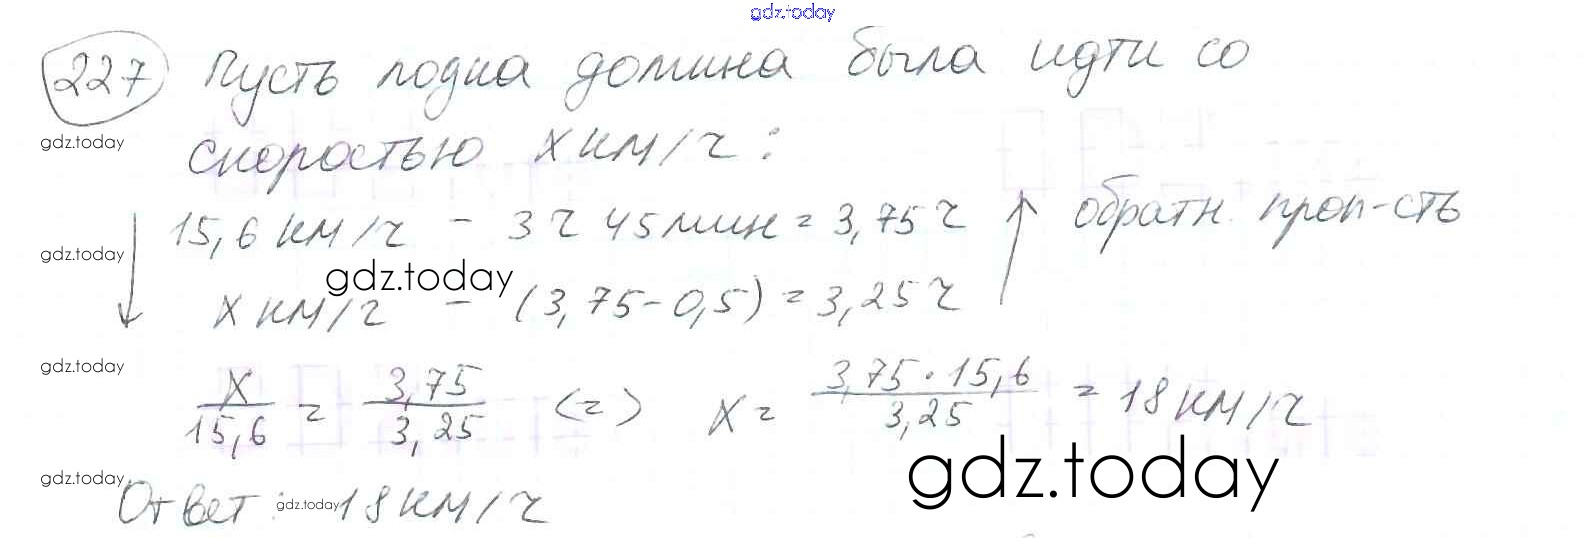 gdz.today
227 Пусть лодка должна была идти со
gdz.today
скоростью x км/ч:
15,6 км/ч - 3 ч 45 мин = 3,75 ч обратн. проп-сть
gdz.today
gdz.today
x км/ч - (3,75-0,5) = 3,25 ч
gdz.today
x/15,6 = 3,75/3,25 <=> x = 3,75·15,6/3,25 = 18 км/ч
gdz.today
gdz.today
Ответ: 18 км/ч
gdz.today